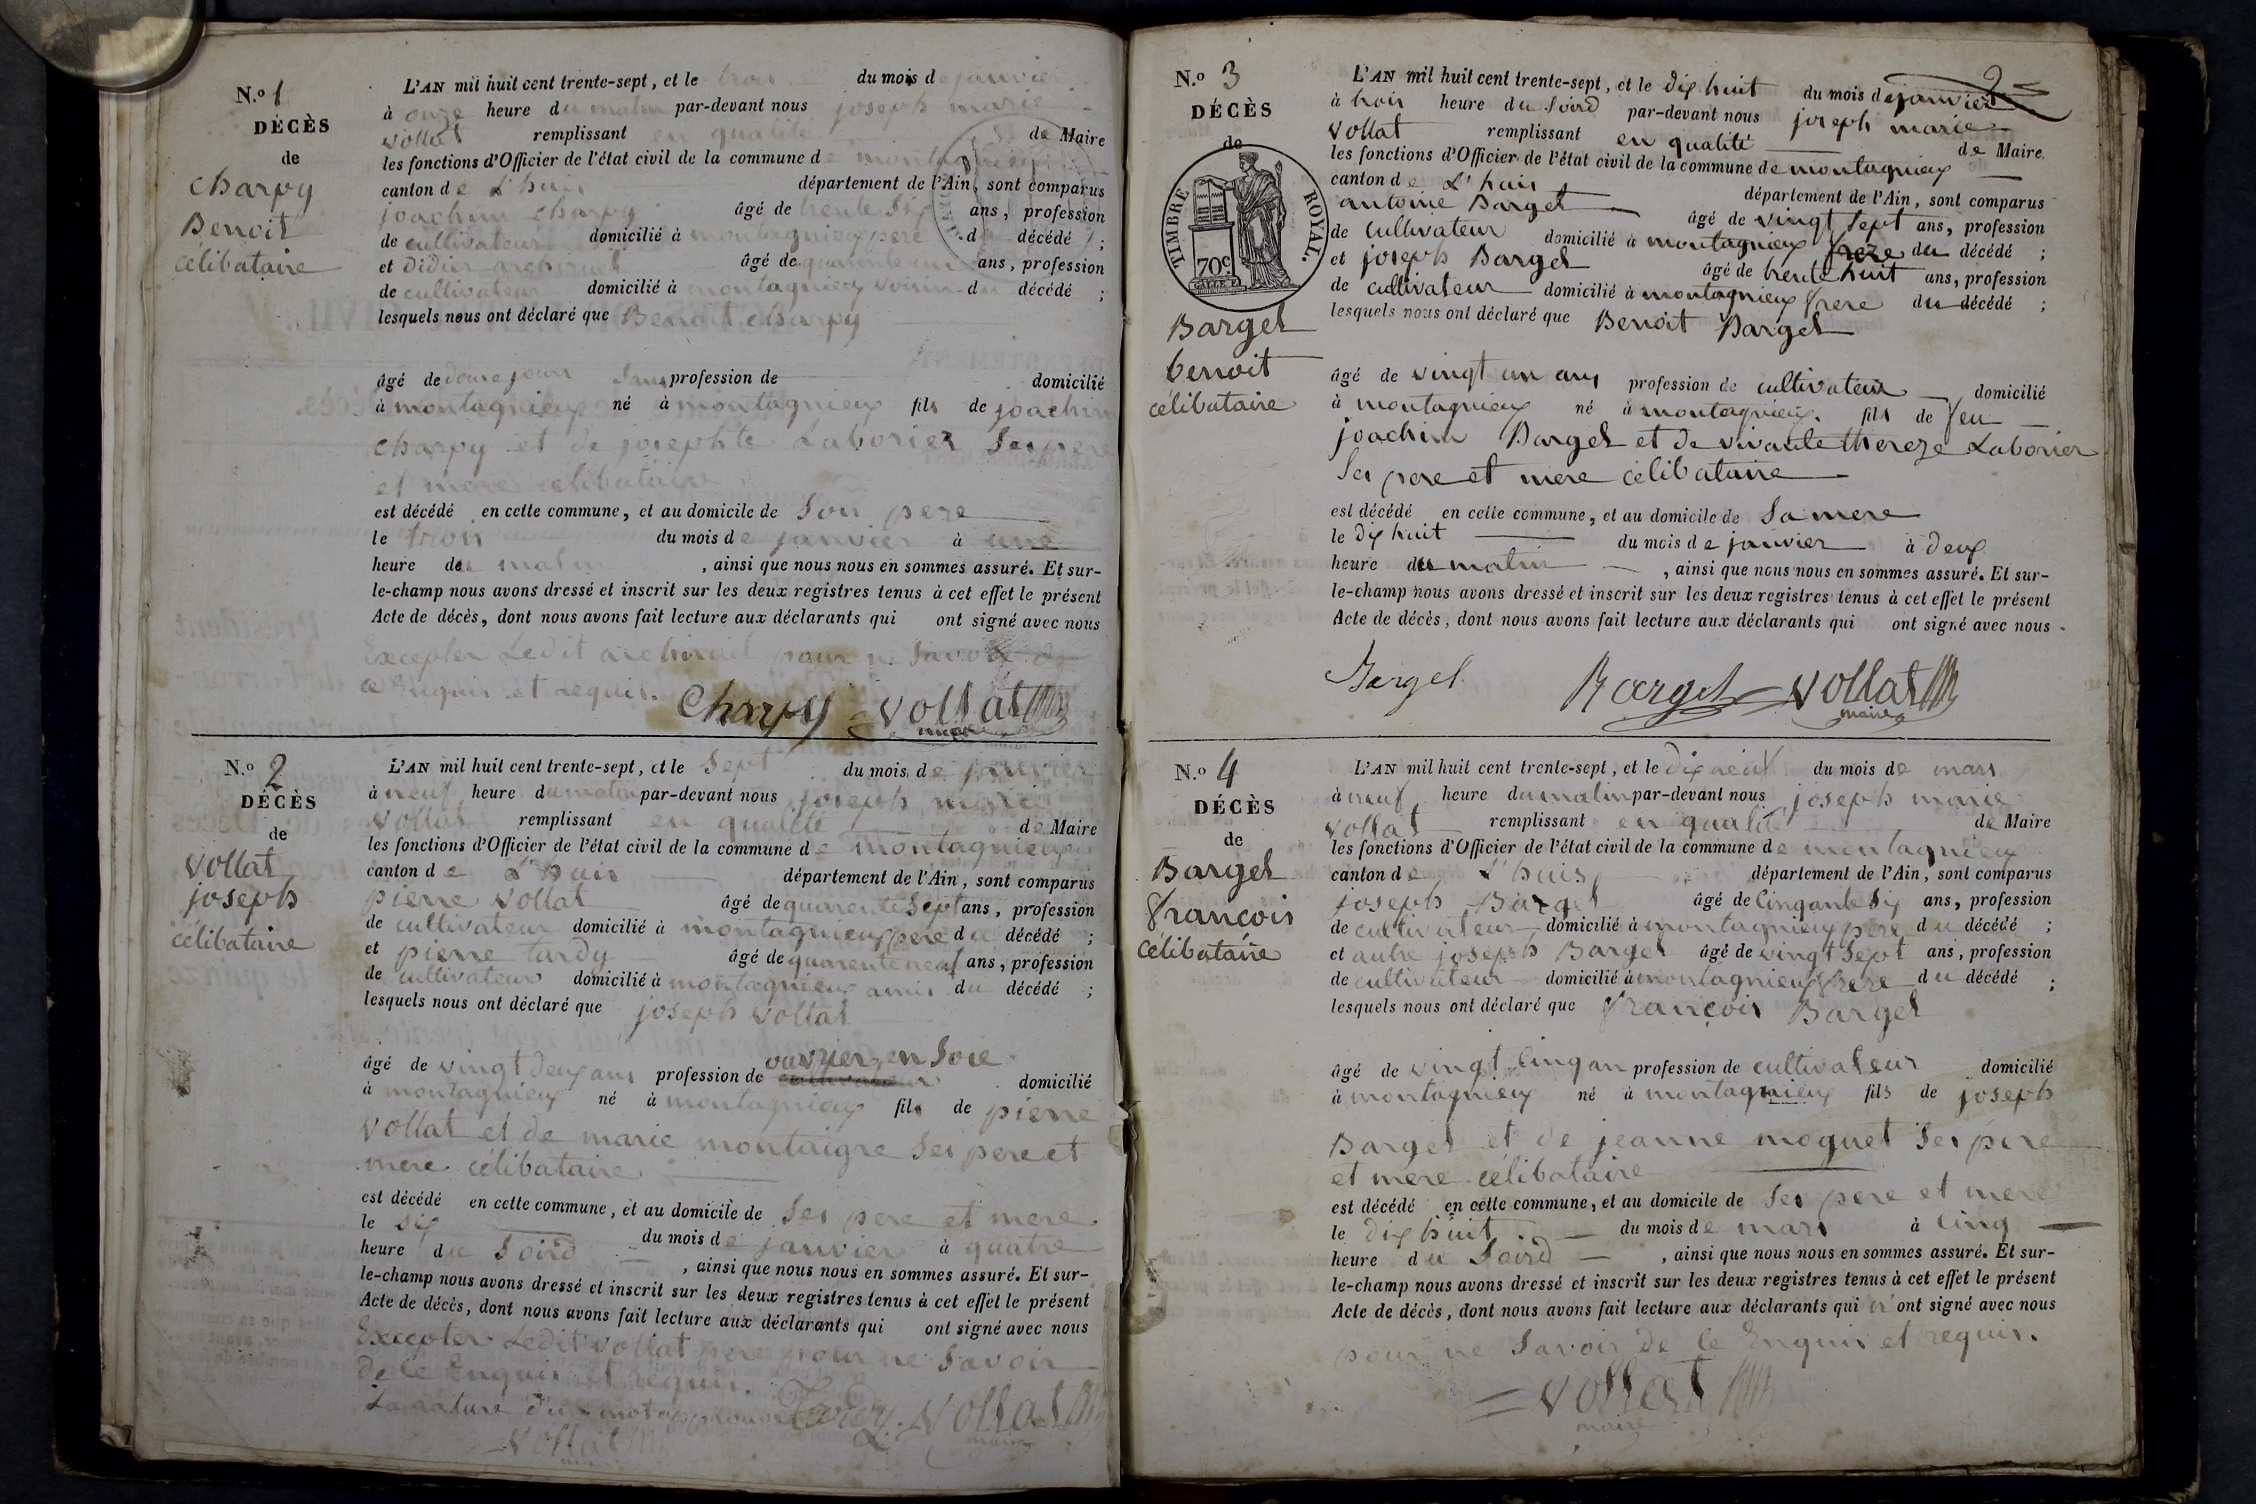 N.º 1
DÉCÈS
de
Charpy
Benoit
célibataire
L'AN mil huit cent trente-sept, et le trois du mois de janvier
à onze heure du matin par-devant nous joseph marie
vollat remplissant en qualité de Maire
les fonctions d'Officier de l'état civil de la commune de montagnieux
canton de L'huis département de l'Ain, sont comparus
joachim Charpy âgé de trente six ans, profession
de cultivateur domicilié à montagnieux pere du décédé ;
et Didier âgé de quarente ans, profession
de cultivateur domicilié à montagnieux voisin du décédé ;
lesquels nous ont déclaré que Benoit Charpy
âgé de douze jours sans profession de domicilié
à montagnieux né à montagnieux fils de joachim
Charpy et de josephte Laborier Ses pere
et mere célibataire
est décédé en cette commune, et au domicile de Son pere
le trois du mois de janvier à une
heure du matin, ainsi que nous nous en sommes assuré. Et sur-
le-champ nous avons dressé et inscrit sur les deux registres tenus à cet effet le présent
Acte de décès, dont nous avons fait lecture aux déclarants qui ont signé avec nous
Excepter Ledit pour ne Savoir de
ce Enquis et requis.
Charpy vollat
maire
N.º 2
DÉCÈS
de
vollat
joseph
célibataire
L'AN mil huit cent trente-sept, et le Sept du mois de janvier
à neuf heure du matin par-devant nous joseph marie
vollat remplissant en qualité de Maire
les fonctions d'Officier de l'état civil de la commune de montagnieux
canton de L'huis département de l'Ain, sont comparus
pierre vollat âgé de quarente Sept ans, profession
de cultivateur domicilié à montagnieux pere du décédé ;
et pierre tardy âgé de quarente neuf ans, profession
de cultivateur domicilié à montagnieux amis du décédé ;
lesquels nous ont déclaré que joseph vollat
ouvrier en Soie
âgé de vingt deux ans profession de cultivateur domicilié
à montagnieux né à montagnieux fils de pierre
vollat et de marie montaigre Ses pere et
mere célibataire
est décédé en cette commune, et au domicile de Ses pere et mere
le six du mois de janvier à quatre
heure du Soird, ainsi que nous nous en sommes assuré. Et sur-
le-champ nous avons dressé et inscrit sur les deux registres tenus à cet effet le présent
Acte de décès, dont nous avons fait lecture aux déclarants qui ont signé avec nous
Excepter Ledit vollat pere pour ne Savoir
De le Enquis et requis.
La rature d'un mot approuvé Tardy vollat
vollat maire
N.º 3
2
DÉCÈS
de
TIMBRE ROYAL.
70 c.
Barget
benoit
célibataire
L'AN mil huit cent trente-sept, et le dix huit du mois de janvier
à trois heure du Soird par-devant nous joseph marie
vollat remplissant en qualité de Maire
les fonctions d'Officier de l'état civil de la commune de montagnieux
canton de L'huis département de l'Ain, sont comparus
antoine Barget âgé de vingt Sept ans, profession
de cultivateur domicilié à montagnieux frere du décédé ;
et joseph Barget âgé de trente huit ans, profession
de cultivateur domicilié à montagnieux frere du décédé ;
lesquels nous ont déclaré que Benoit Barget
âgé de vingt un ans profession de cultivateur domicilié
à montagnieux né à montagnieux fils de feu
joachim Barget et de vivante thereze Laborier
Ses pere et mere célibataire
est décédé en cette commune, et au domicile de Sa mere
le dix huit du mois de janvier à deux
heure du matin, ainsi que nous nous en sommes assuré. Et sur-
le-champ nous avons dressé et inscrit sur les deux registres tenus à cet effet le présent
Acte de décès, dont nous avons fait lecture aux déclarants qui ont signé avec nous.
Barget Barget vollat
maire
N.º 4
DÉCÈS
de
Barget
françois
célibataire
L'AN mil huit cent trente-sept, et le dix neuf du mois de mars
à neuf heure du matin par-devant nous joseph marie
vollat remplissant en qualité de Maire
les fonctions d'Officier de l'état civil de la commune de montagnieux
canton de L'huis département de l'Ain, sont comparus
joseph Barget âgé de Cinqante Six ans, profession
de cultivateur domicilié à montagnieux pere du décédé ;
et autre joseph Barget âgé de vingt Sept ans, profession
de cultivateur domicilié à montagnieux frere du décédé ;
lesquels nous ont déclaré que françois Barget
âgé de vingt Cinq an profession de cultivateur domicilié
à montagnieux né à montagnieux fils de joseph
Barget et de jeanne moquet Ses pere
et mere célibataire
est décédé en cette commune, et au domicile de Ses pere et mere
le dix huit du mois de mars à Cinq
heure du Soird, ainsi que nous nous en sommes assuré. Et sur-
le-champ nous avons dressé et inscrit sur les deux registres tenus à cet effet le présent
Acte de décès, dont nous avons fait lecture aux déclarants qui n'ont signé avec nous
pour ne Savoir de le Enquis et requis.
vollat
maire